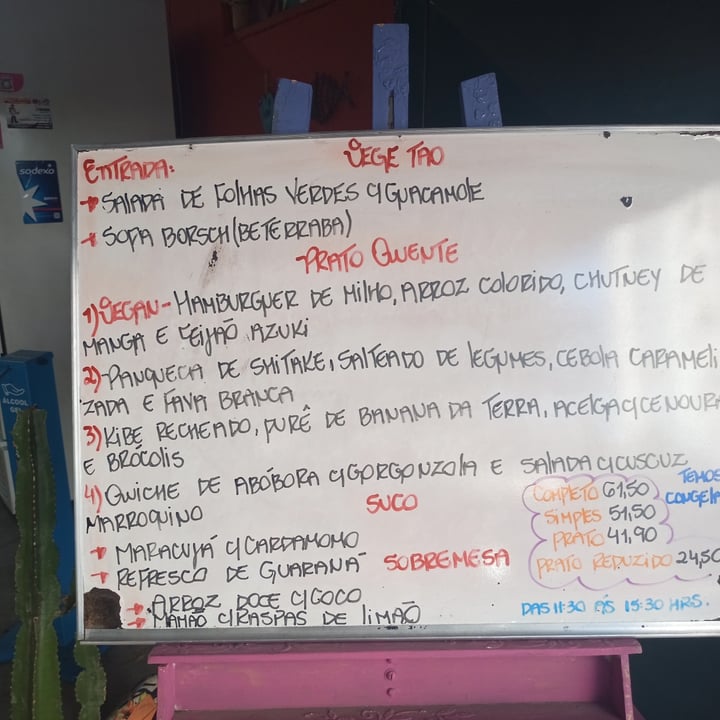 VEGE TAO
ENTRADA:
SALADA DE FOLHAS VERDES C/GUACAMOLE
SOPA BORSCH(BETERRABA)
PRATO QUENTE
1)VEGAN-HAMBURGUER DE MILHO, ARROZ COLORIDO, CHUTNEY DE
MANGA E FEIJÃO AZUKI
2)-PANQUECA DE SHITAKE, SALTEADO DE LEGUMES, CEBOLA CARAMELI
ZADA E FAVA BRANCA
3)KIBE RECHEADO, PURÊ DE BANANA DA TERRA, ACELGA C/CENOURA
E BRÓCOLIS
4)QUICHE DE ABÓBORA C/GORGONZOLA E SALADA C/CUSCUZ
MARROQUINO
SUCO
MARACUJÁ C/CARDAMOMO
REFRESCO DE GUARANÁ
SOBREMESA
ARROZ DOCE C/COCO
MAMÃO C/RASPAS DE LIMÃO
COMPLETO 61,50
SIMPLES 51,50
PRATO 41,90
PRATO REDUZIDO 24,50
TEMOS
CONGELA
DAS 11:30 ÀS 15:30 HRS.
sodexo
ÁLCOOL
GEL